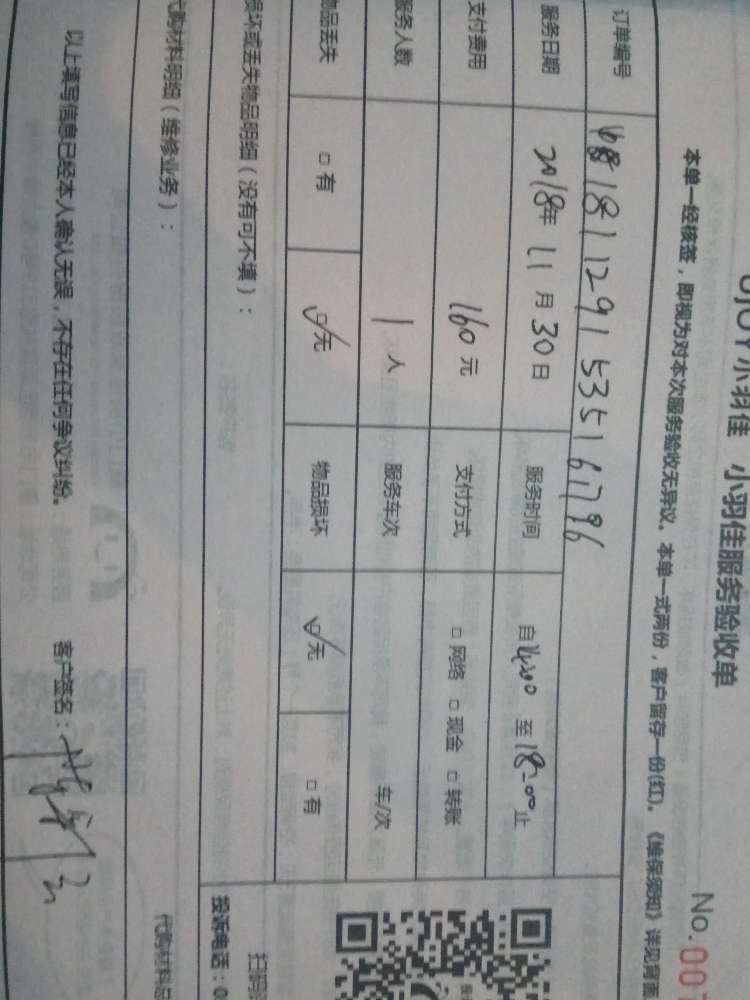 UJOY小羽佳 小羽佳服务验收单
No.00
本单一经核签，即视为对本次服务验收无异议。本单一式两份，客户留存一份(红)。《维保须知》详见背面
订单编号
服务日期 2018年 11 月 30 日 服务时间 自14:00 至 18:00止
支付费用 160 元 支付方式 □ 网络 □ 现金 □ 转账
服务人数 1 人 服务车次 车/次
物品丢失 □ 有 ☑无 物品损坏 ☑无 □ 有
损坏或丢失物品明细（没有可不填）：
扫码
投诉电话：0
代购材料明细（维修业务）：
代购材料总
以上填写信息已经本人确认无误，不存在任何争议纠纷。 客户签名：